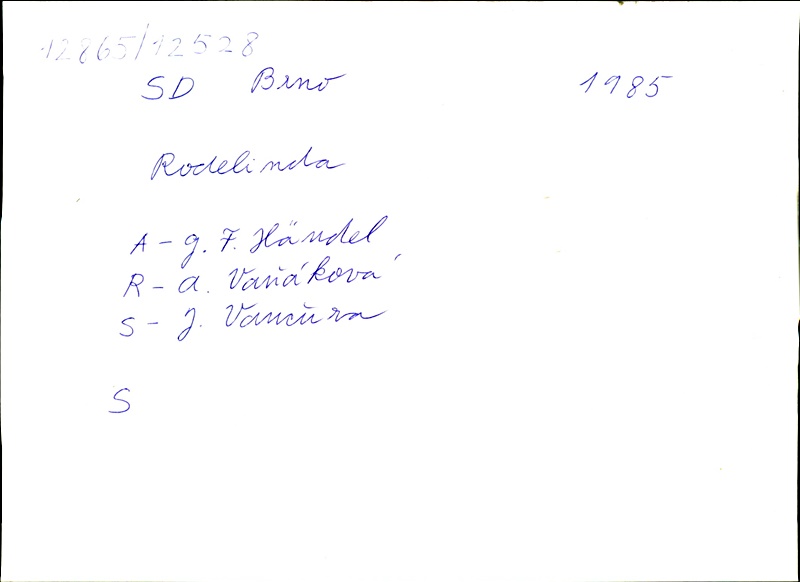 12865/12528
SD Brno 1985
Rodelinda
A - G. F. Händel
R - A. Vaňáková
S - J. Vančura
S